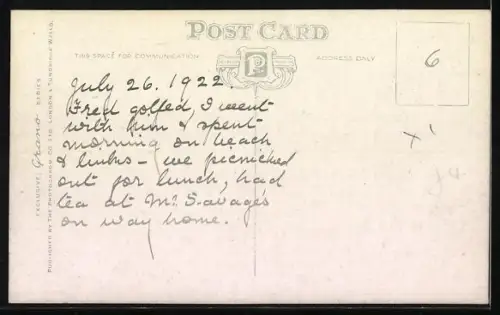 POST CARD
THIS SPACE FOR COMMUNICATION
ADDRESS ONLY
P
6
July 26. 1922.
Fred golfed, I went
with him & spent
morning on beach
& links - we picnicked
out for lunch, had
tea at Mrs Savage's
on way home.
X'
EXCLUSIVE Grano SERIES
PUBLISHED BY THE PHOTOCHROM CO. LTD. LONDON & TUNBRIDGE WELLS.